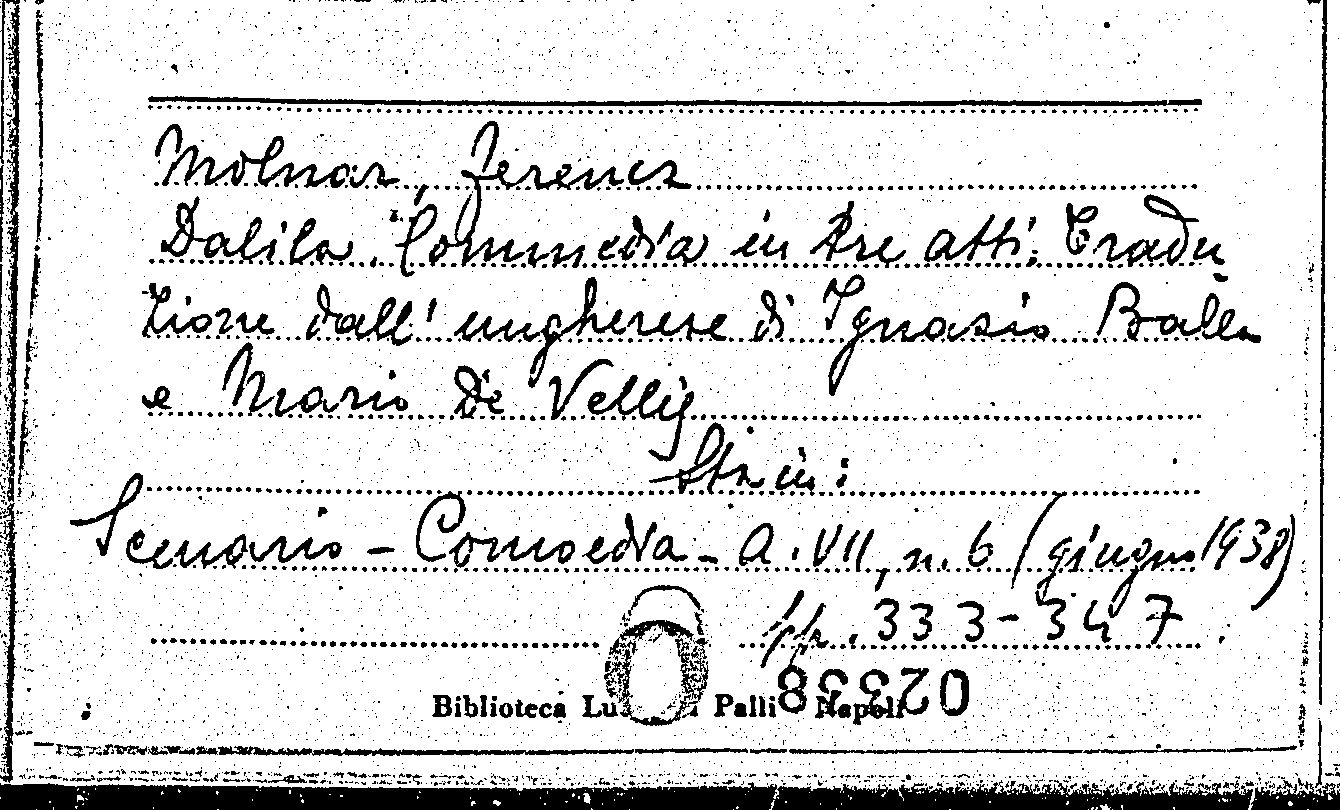 Molnar, Ferencz
Dalila. Commedia in tre atti. Tradu-
zione dall' ungherese di Ignazio Balla
e Mario De Vellis
Sta in:
Scenario - Comoedia - A. VII, n. 6 (giugno 1938)
pp. 333-347.
Biblioteca Lu Palli Napoli